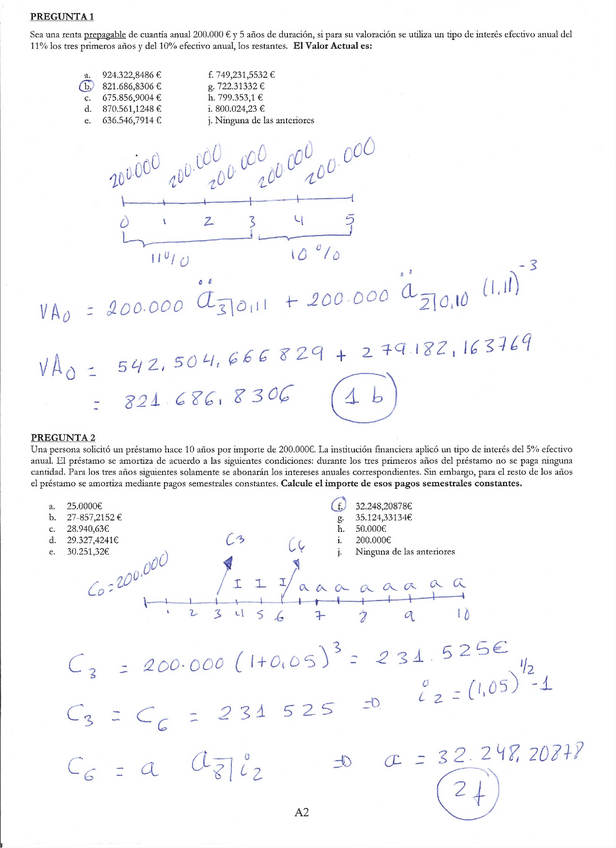 PREGUNTA 1
Sea una renta prepagable de cuantía anual 200.000 € y 5 años de duración, si para su valoración se utiliza un tipo de interés efectivo anual del
11% los tres primeros años y del 10% efectivo anual, los restantes. El Valor Actual es:
a. 924.322,8486 € f. 749,231,5532 €
b. 821.686,8306 € g. 722.31332 €
c. 675.856,9004 € h. 799.353,1 €
d. 870.561,1248 € i. 800.024,23 €
e. 636.546,7914 € j. Ninguna de las anteriores
200.000 200.000 200.000 200.000 200.000
0 1 2 3 4 5
11% 10%
VA0 = 200.000 ä3|0,11 + 200.000 ä2|0,10 (1,11)^-3
VA0 = 542,504,666829 + 279.182,163769
= 821.686,8306 1 b
PREGUNTA 2
Una persona solicitó un préstamo hace 10 años por importe de 200.000€. La institución financiera aplicó un tipo de interés del 5% efectivo
anual. El préstamo se amortiza de acuerdo a las siguientes condiciones: durante los tres primeros años del préstamo no se paga ninguna
cantidad. Para los tres años siguientes solamente se abonarán los intereses anuales correspondientes. Sin embargo, para el resto de los años
el préstamo se amortiza mediante pagos semestrales constantes. Calcule el importe de esos pagos semestrales constantes.
a. 25.0000€ f. 32.248,20878€
b. 27-857,2152 € g. 35.124,33134€
c. 28.940,63€ h. 50.000€
d. 29.327,4241€ i. 200.000€
e. 30.251,32€ j. Ninguno de las anteriores
C3 C6
C0=200.000 I I I a a a a a a a a
1 2 3 4 5 6 7 8 9 10
C3 = 200.000 (1+0,05)^3 = 231.525€
C3 = C6 = 231 525 => i2 = (1,05)^1/2 -1
C6 = a a8|i2 => a = 32.248,20878
2 f
A2